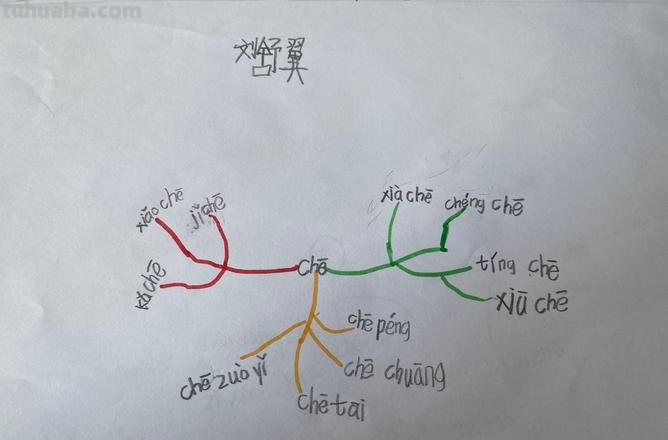 tuhuaba.com
刘舒翼
xiǎo chē
jǐ chē
kǎ chē
chē
xià chē
chéng chē
tíng chē
xiū chē
chē péng
chē chuāng
chē tāi
chē zuò yǐ